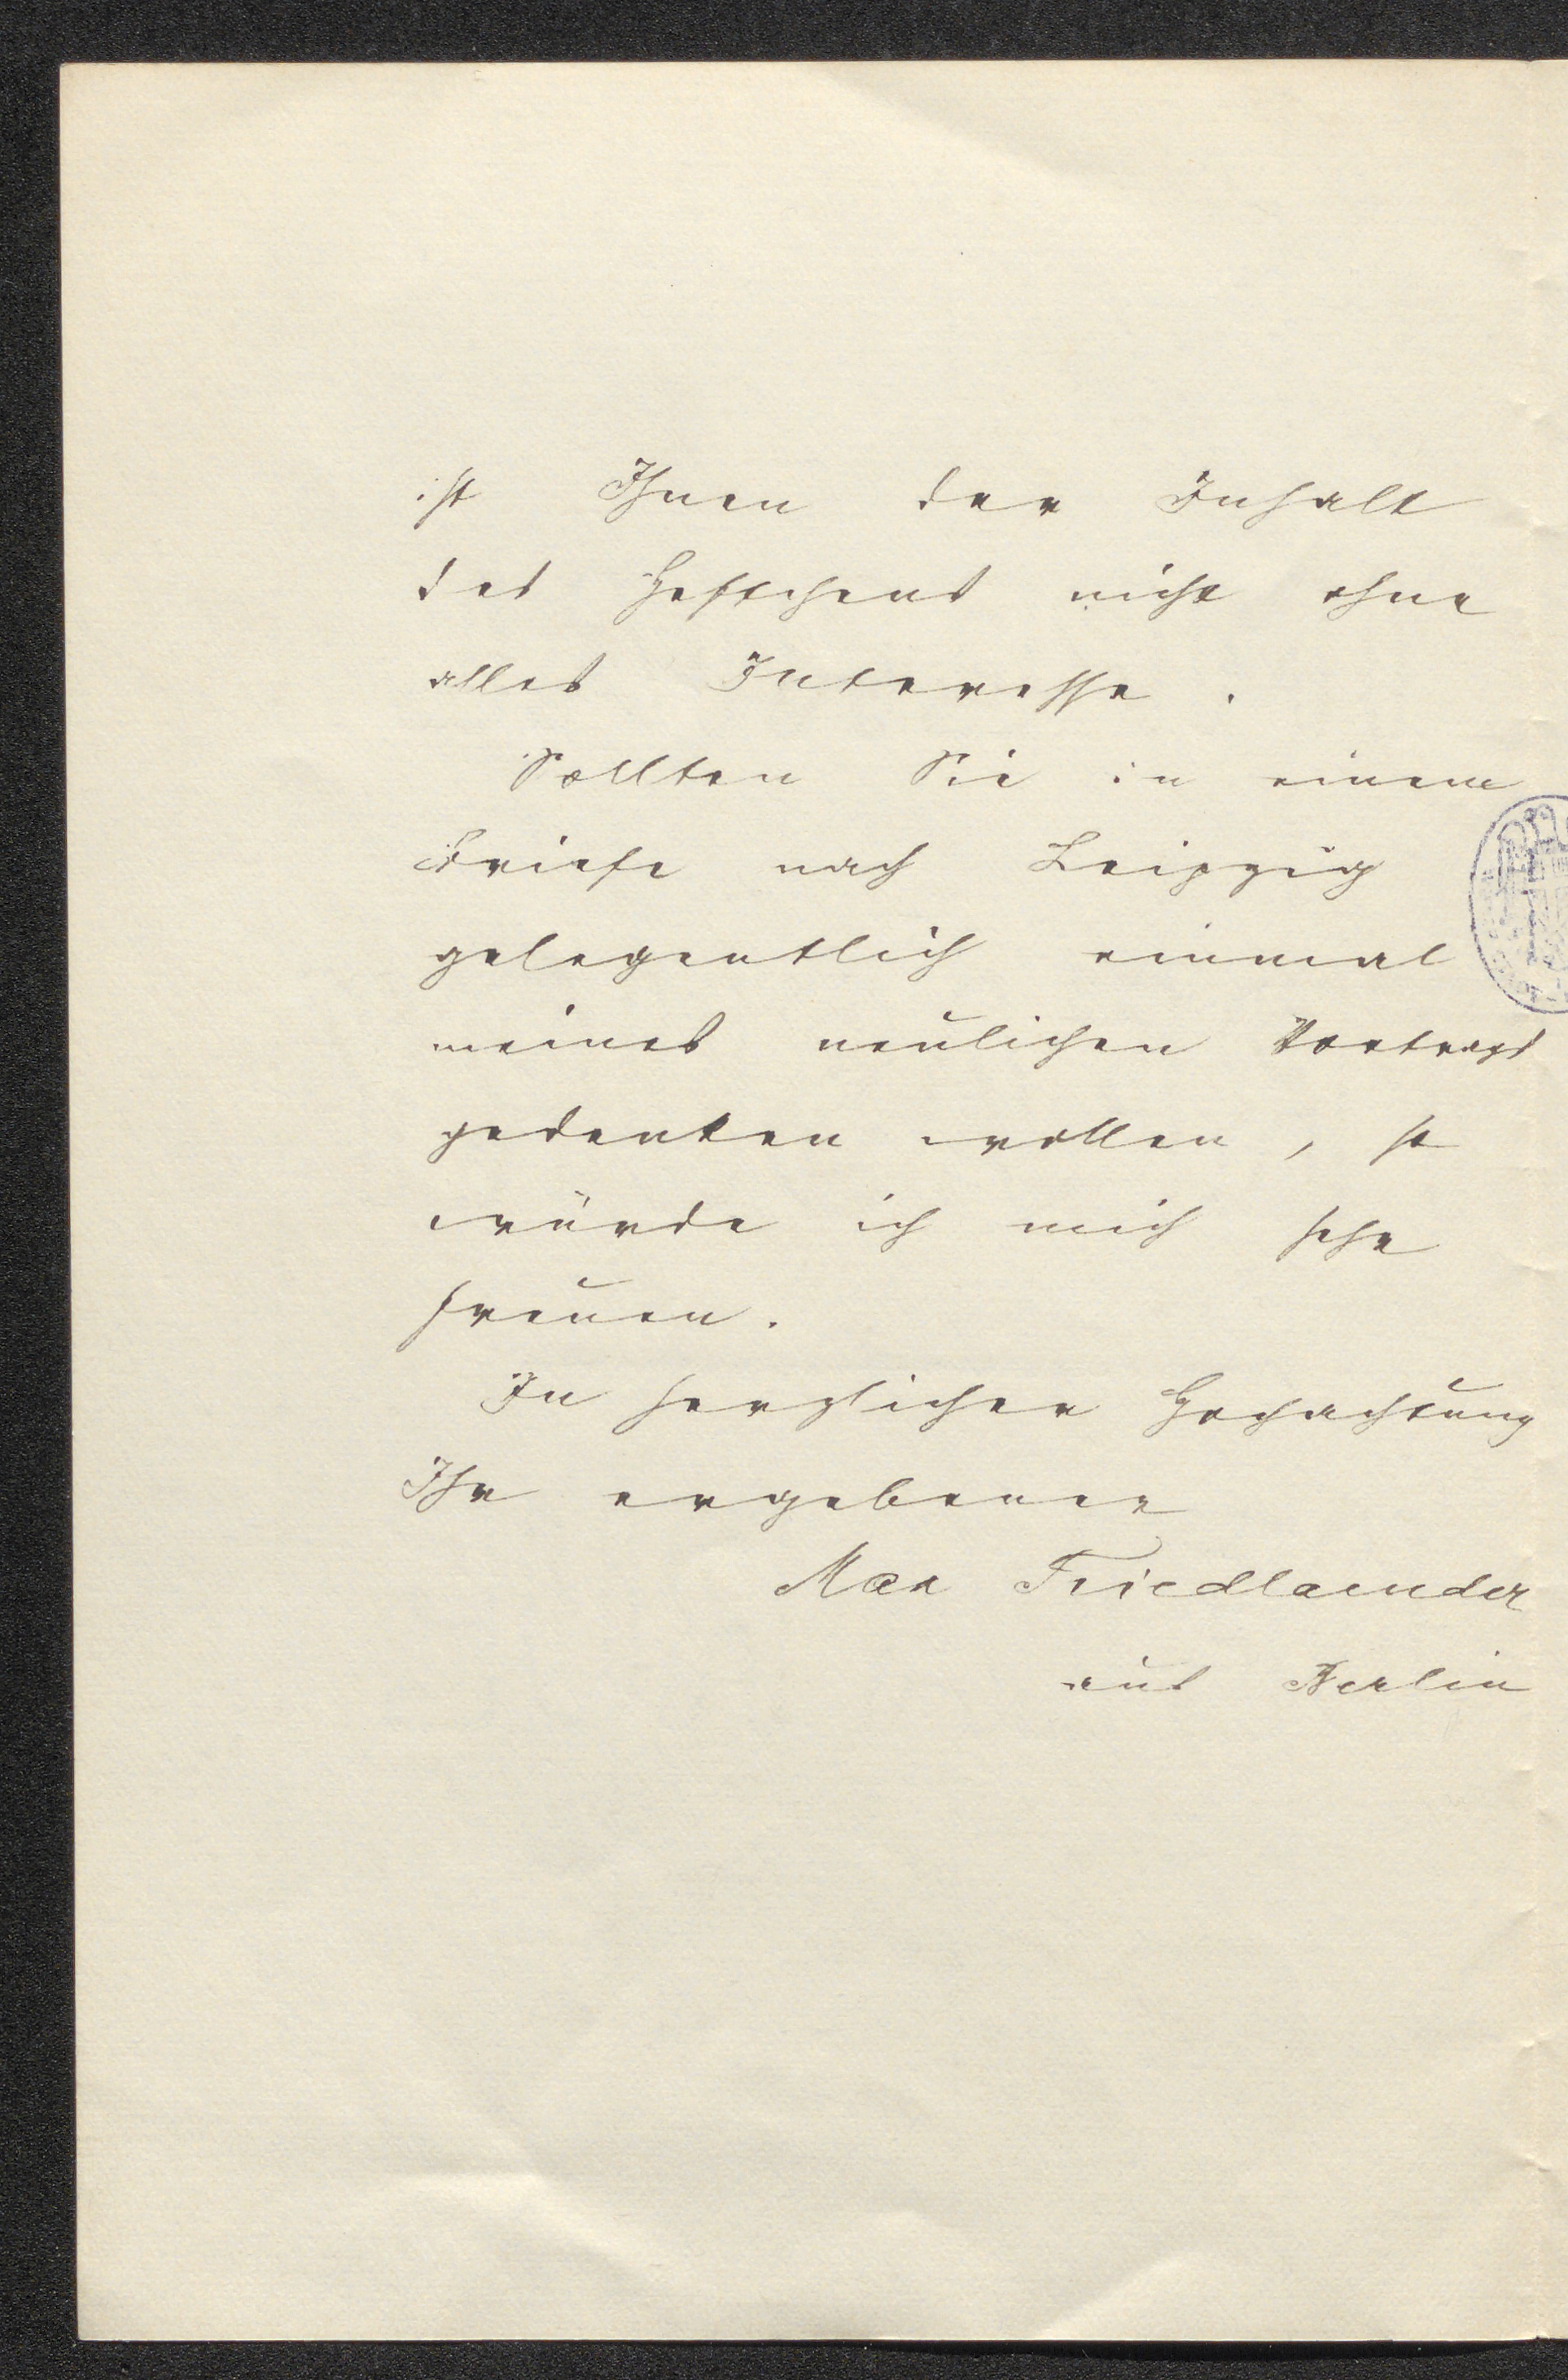 ist Ihnen der Inhalt
des Heftchens nicht ohne
alles Interesse.
Sollten Sie in einem
Briefe nach Leipzig
gelegentlich einmal
meines neulichen Vortrags
gedenken wollen, so
würde ich mich sehr
freuen.
In herzlicher Hochachtung
Ihr ergebener
Max Friedlaender
aus Berlin